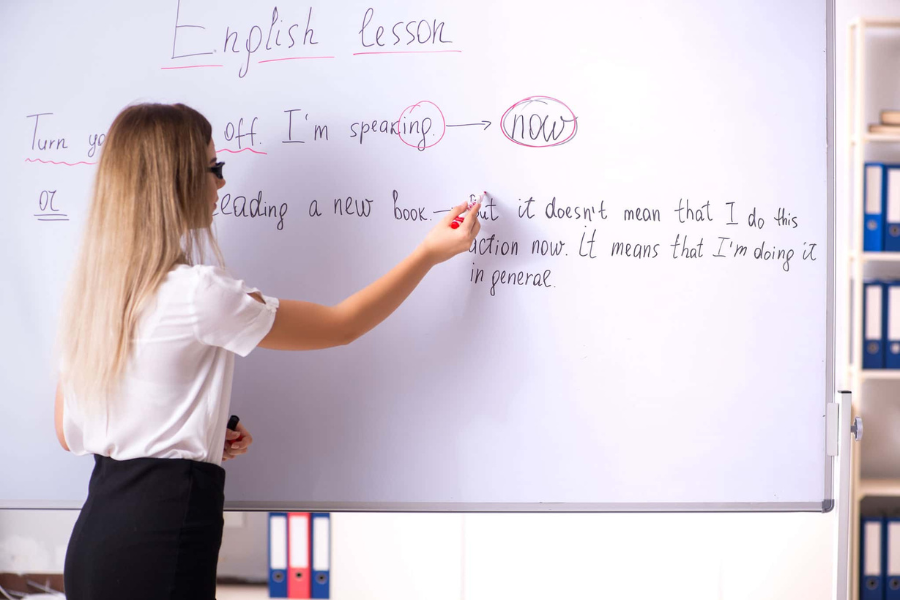 English lesson
Turn off. I'm speaking. → now
or a new book. — But it doesn't mean that I do this
action now. It means that I'm doing it
in general.